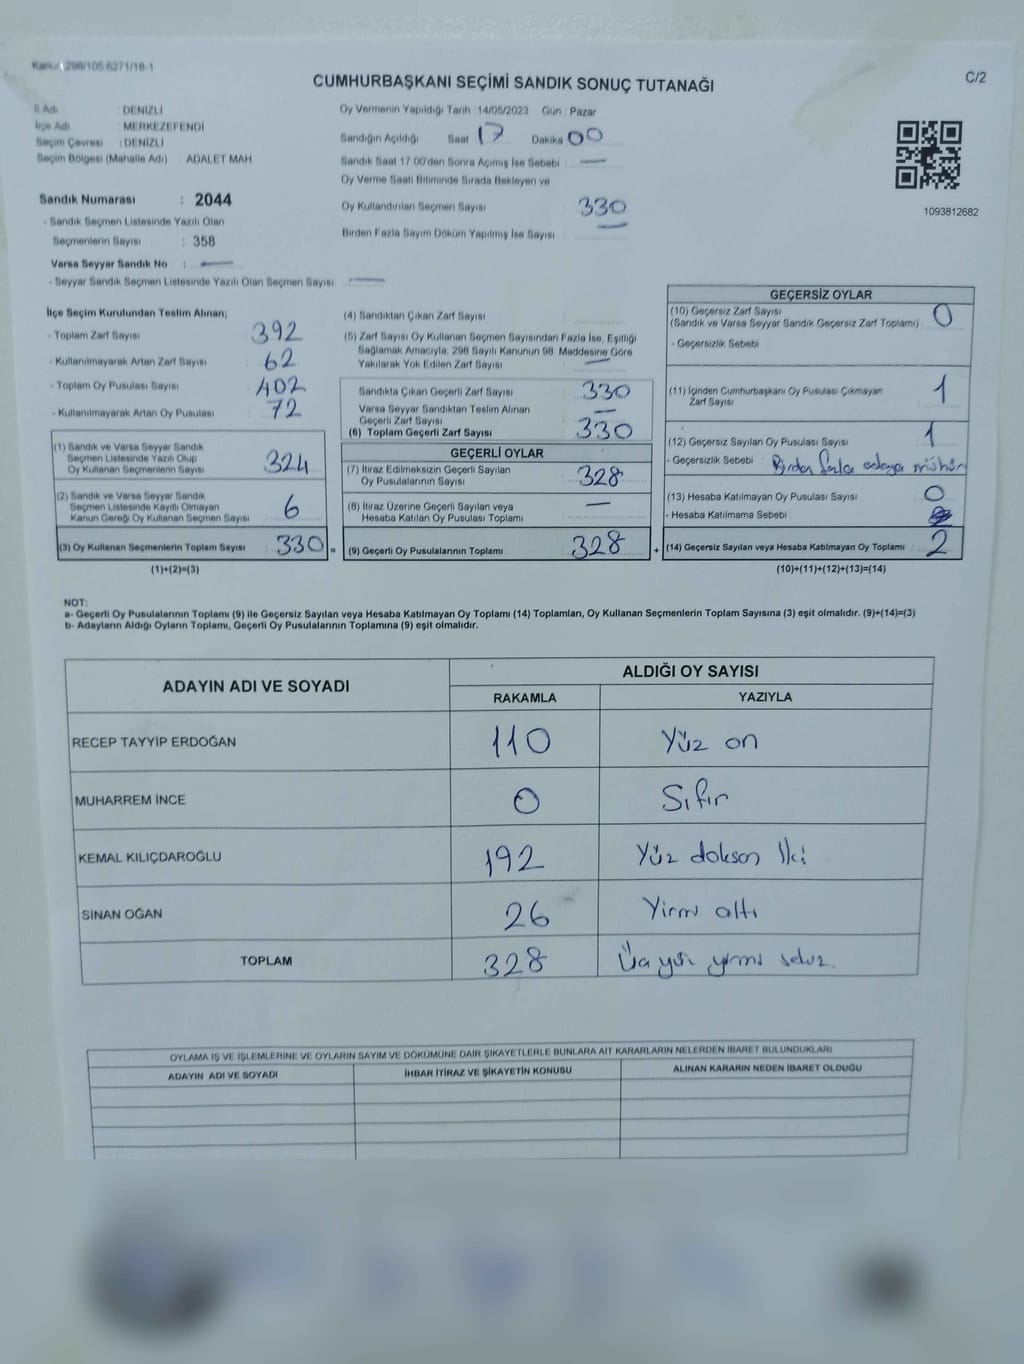 Kanun 298/105,6271/18-1
C/2
CUMHURBAŞKANI SEÇİMİ SANDIK SONUÇ TUTANAĞI
İl Adı : DENİZLİ
İlçe Adı : MERKEZEFENDİ
Seçim Çevresi : DENİZLİ
Seçim Bölgesi (Mahalle Adı) : ADALET MAH
Sandık Numarası : 2044
- Sandık Seçmen Listesinde Yazılı Olan
Seçmenlerin Sayısı : 358
Varsa Seyyar Sandık No : —
- Seyyar Sandık Seçmen Listesinde Yazılı Olan Seçmen Sayısı : —
Oy Vermenin Yapıldığı Tarih : 14/05/2023 Gün : Pazar
Sandığın Açıldığı Saat 17 Dakika 00
Sandık Saat 17:00'den Sonra Açımış İse Sebebi : —
Oy Verme Saati Bitiminde Sırada Bekleyen ve
Oy Kullandırılan Seçmen Sayısı : 330
Birden Fazla Sayım Döküm Yapılmış İse Sayısı : —
1093812682
İlçe Seçim Kurulundan Teslim Alınan;
- Toplam Zarf Sayısı 392
- Kullanılmayarak Artan Zarf Sayısı : 62
- Toplam Oy Pusulası Sayısı : 402
- Kullanılmayarak Artan Oy Pusulası : 72
(1) Sandık ve Varsa Seyyar Sandık
Seçmen Listesinde Yazılı Olup
Oy Kullanan Seçmenlerin Sayısı : 324
(2) Sandık ve Varsa Seyyar Sandık
Seçmen Listesinde Kayıtlı Olmayan
Kanun Gereği Oy Kullanan Seçmen Sayısı : 6
(3) Oy Kullanan Seçmenlerin Toplam Sayısı : 330 =
(1)+(2)=(3)
(4) Sandıktan Çıkan Zarf Sayısı :
(5) Zarf Sayısı Oy Kullanan Seçmen Sayısından Fazla İse, Eşitliği
Sağlamak Amacıyla, 298 Sayılı Kanunun 98. Maddesine Göre
Yakılarak Yok Edilen Zarf Sayısı : —
Sandıkta Çıkan Geçerli Zarf Sayısı : 330
Varsa Seyyar Sandıktan Teslim Alınan
Geçerli Zarf Sayısı : —
(6) Toplam Geçerli Zarf Sayısı : 330
GEÇERLİ OYLAR
(7) İtiraz Edilmeksizin Geçerli Sayılan
Oy Pusulalarının Sayısı : 328
(8) İtiraz Üzerine Geçerli Sayılan veya
Hesaba Katılan Oy Pusulası Toplamı : —
(9) Geçerli Oy Pusulalarının Toplamı : 328 +
GEÇERSİZ OYLAR
(10) Geçersiz Zarf Sayısı
(Sandık ve Varsa Seyyar Sandık Geçersiz Zarf Toplamı) : 0
- Geçersizlik Sebebi :
(11) İçinden Cumhurbaşkanı Oy Pusulası Çıkmayan
Zarf Sayısı : 1
(12) Geçersiz Sayılan Oy Pusulası Sayısı : 1
- Geçersizlik Sebebi : Birden fazla adaya mühür
(13) Hesaba Katılmayan Oy Pusulası Sayısı : 0
- Hesaba Katılmama Sebebi :
(14) Geçersiz Sayılan veya Hesaba Katılmayan Oy Toplamı : 2
(10)+(11)+(12)+(13)=(14)
NOT:
a- Geçerli Oy Pusulalarının Toplamı (9) ile Geçersiz Sayılan veya Hesaba Katılmayan Oy Toplamı (14) Toplamları, Oy Kullanan Seçmenlerin Toplam Sayısına (3) eşit olmalıdır. (9)+(14)=(3)
b- Adayların Aldığı Oyların Toplamı, Geçerli Oy Pusulalarının Toplamına (9) eşit olmalıdır.
ADAYIN ADI VE SOYADI ALDIĞI OY SAYISI
RAKAMLA YAZIYLA
RECEP TAYYİP ERDOĞAN 110 Yüz on
MUHARREM İNCE 0 Sıfır
KEMAL KILIÇDAROĞLU 192 Yüz doksan İki
SİNAN OĞAN 26 Yirmi altı
TOPLAM 328 Üç yüz yirmi sekiz.
OYLAMA İŞ VE İŞLEMLERİNE VE OYLARIN SAYIM VE DÖKÜMÜNE DAİR ŞİKAYETLERLE BUNLARA AİT KARARLARIN NELERDEN İBARET BULUNDUKLARI
ADAYIN ADI VE SOYADI İHBAR İTİRAZ VE ŞİKAYETİN KONUSU ALINAN KARARIN NEDEN İBARET OLDUĞU